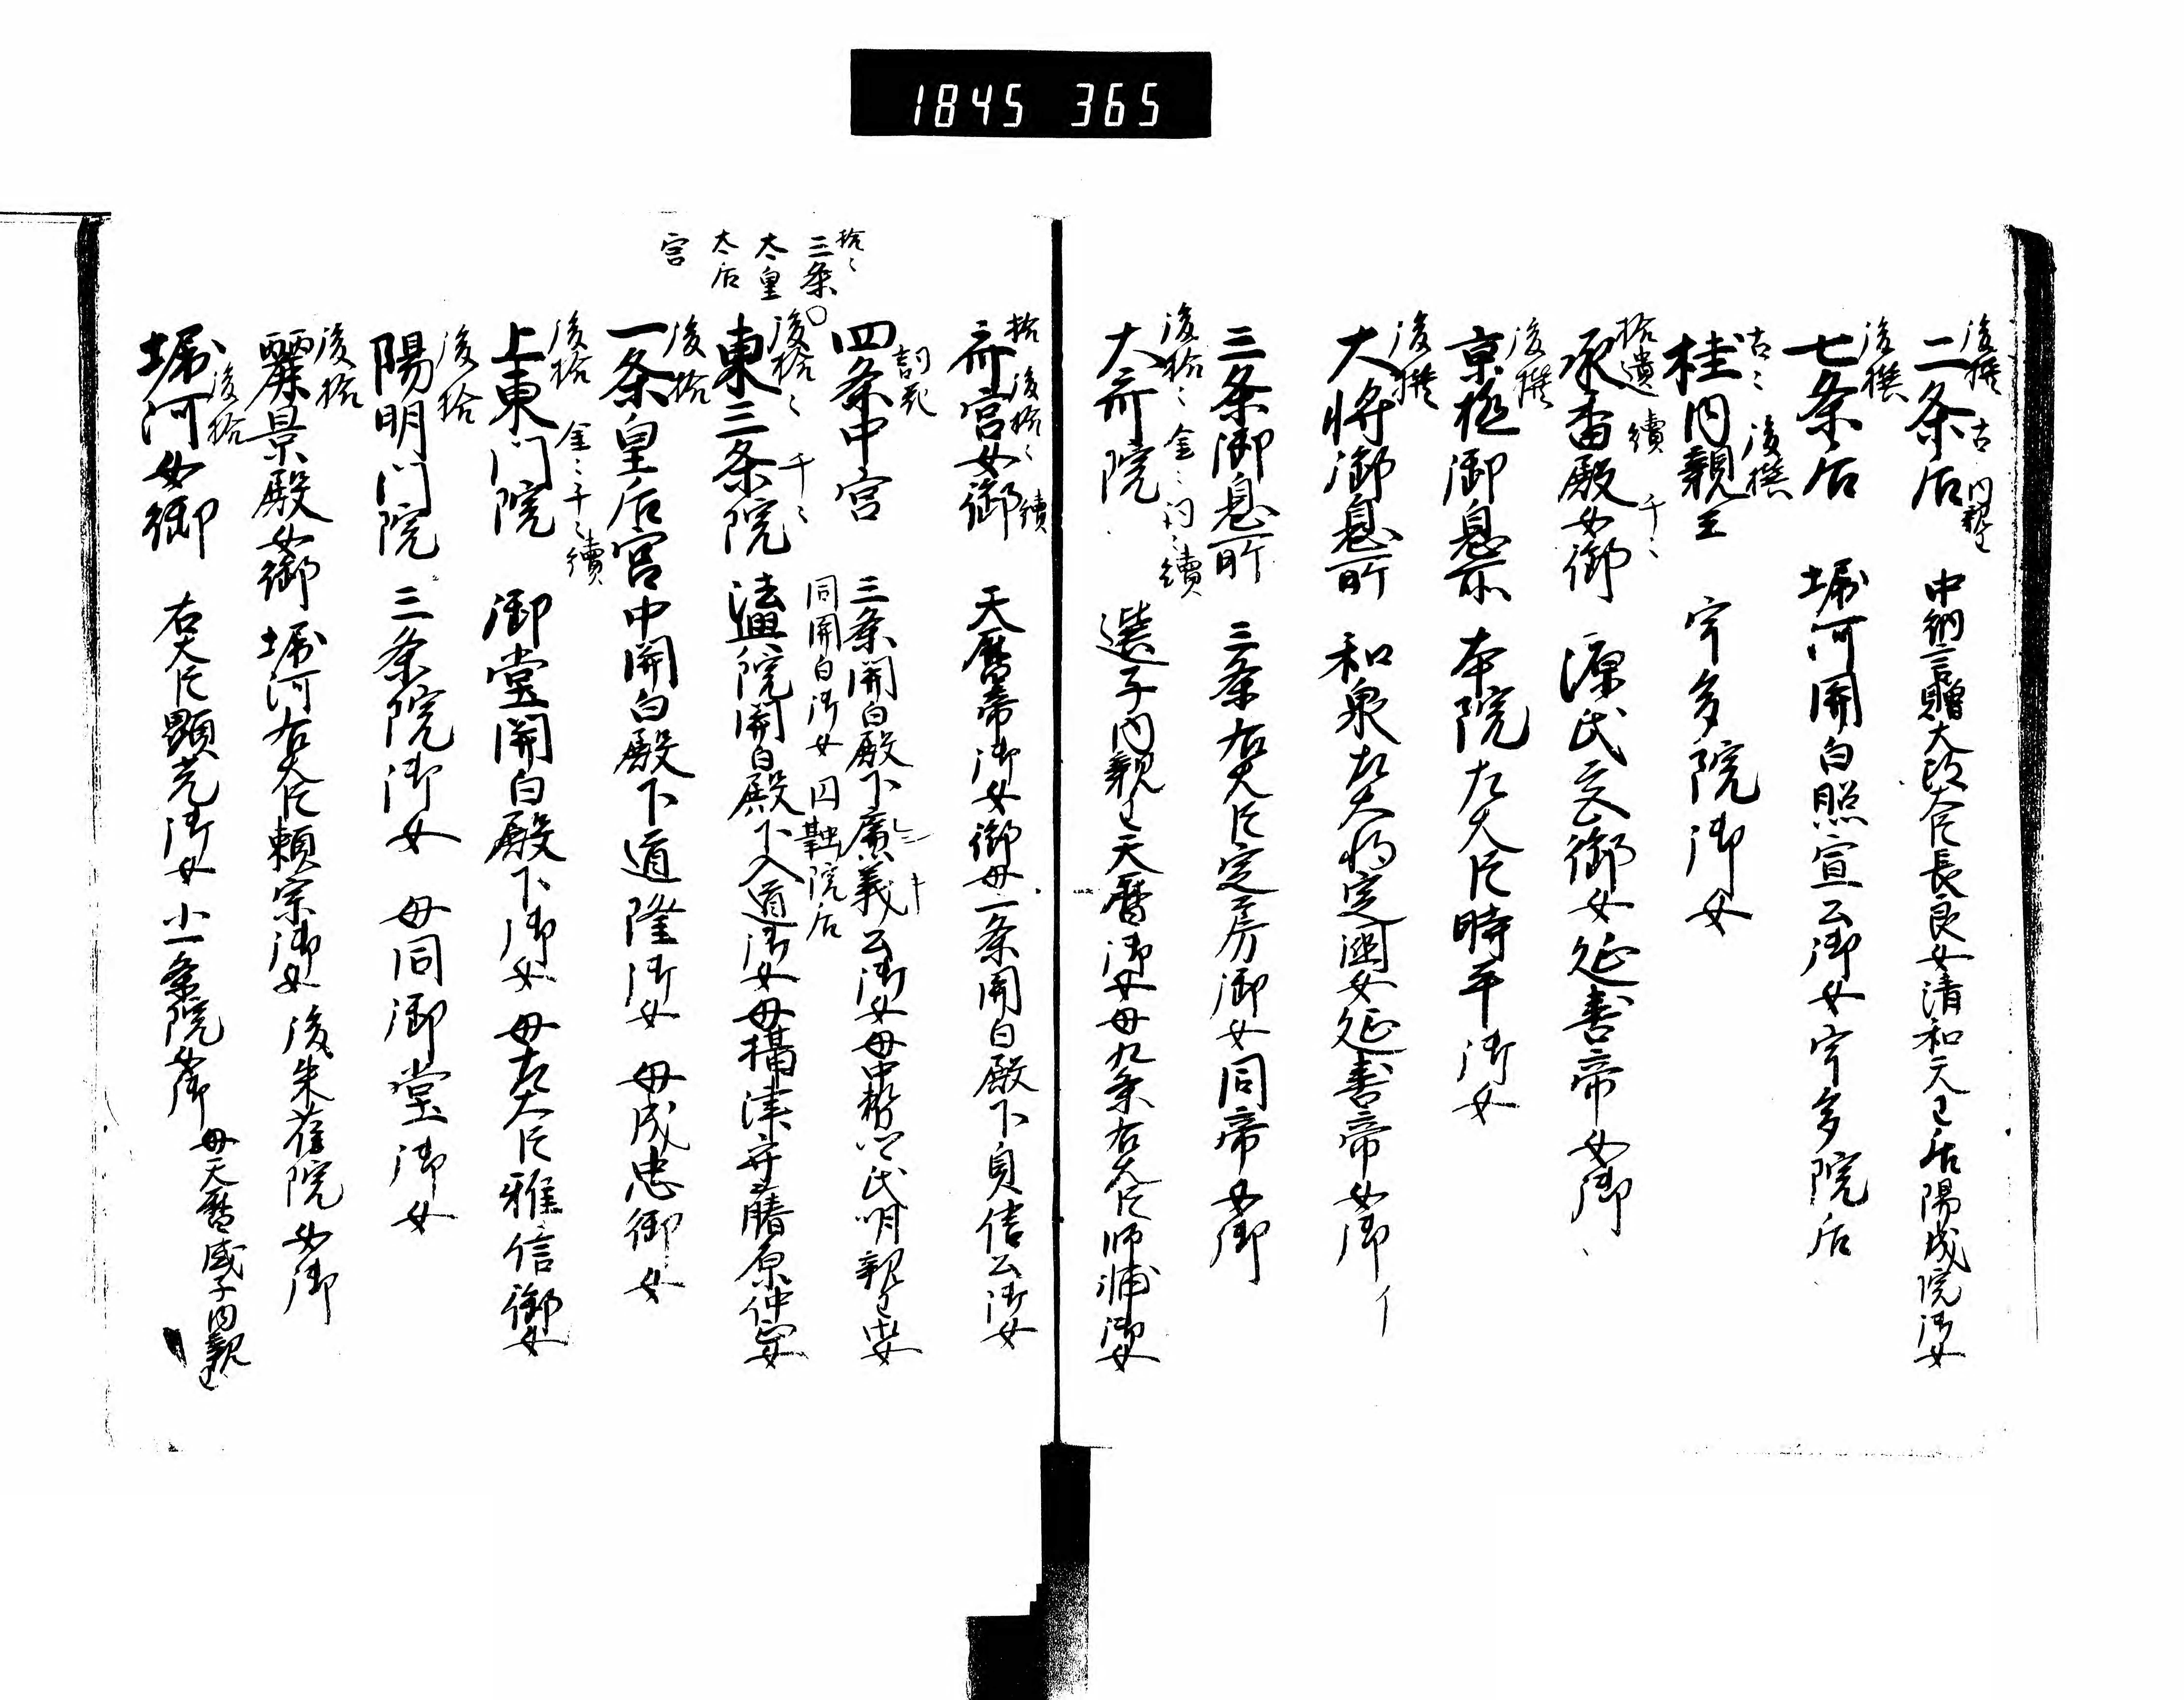 1845 365
後撰 古 内親王
二条后 中納言贈太政大臣長良女清和天王后陽成院御女
後撰
七条后 堀河関白照宣公御女宇多院后
古〻 後撰
桂内親王 宇多院御女
拾遺 續 千〻
承香殿女御 源氏女御女延喜帝女御
後撰
京極御息所 本院左大臣時平御女
後撰
大将御息所 和泉左大将定国女延喜帝女御
三条御息所 三条右大臣定房御女同帝女御
後拾〻 金〻 詞〻 續
大斎院 選子内親王天暦御女母九条右大臣師輔御女
拾 後拾〻 續
斎宮女御 天暦帝御女御母一条関白殿下貞信公御女
詞花
四条中宮 三条関白殿下廉義公御女母中務卿代明親王女
拾〻
三条
太皇
太后
宮
同関白御女円融院后
後拾〻 千〻
東三条院 法興院関白殿下入道御女母摂津守藤原仲安女
後拾
一条皇后宮 中関白殿下道隆御女 母成忠御女
後拾 金〻 千〻 續
上東門院 御堂関白殿下御女 母左大臣雅信御女
後拾
陽明門院 三条院御女 母同御堂御女
後拾
麗景殿女御 堀河右大臣頼宗御女 後朱雀院女御
後拾
堀河女御 右大臣顕光御女 小一条院女御 母天暦盛子内親王